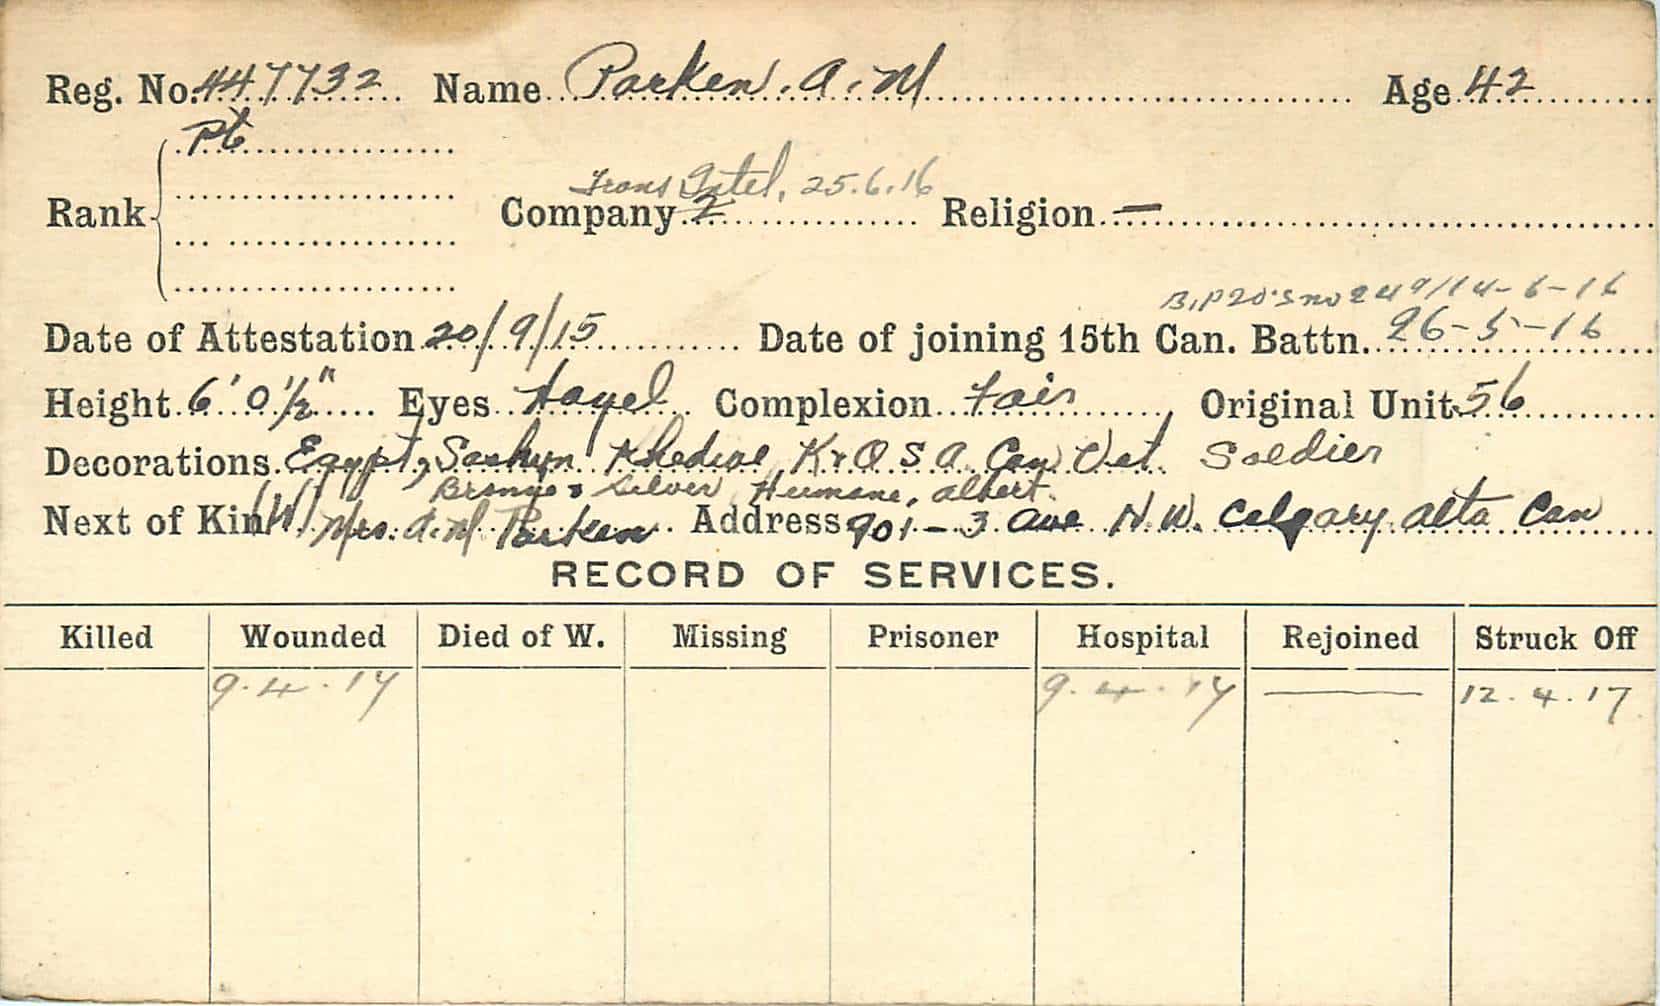 Reg. No. 447732 Name Parken. A. M Age 42
Pte
Trans Intel. 25.6.16
Rank Company 2 Religion —
B, P20's no 249/14-6-16
Date of Attestation 20/9/15 Date of joining 15th Can. Battn. 26-5-16
Height 6'0½" Eyes Hazel Complexion Fair Original Unit 56
Decorations Egypt, Khedive K & Q S A Can Vet. Soldier
Bronze & Silver Humane, Albert.
Next of Kin (W) Mrs. A. M Parken Address 901-3 Ave N.W. Calgary Alta Can
RECORD OF SERVICES.
Killed Wounded Died of W. Missing Prisoner Hospital Rejoined Struck Off
9.4.17 9.4.17 — 12.4.17